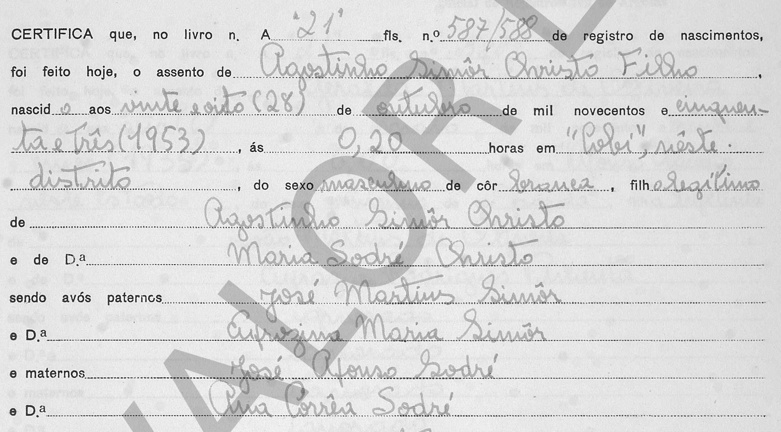 CERTIFICA que, no livro n. A "21" fls. n.º 587/588 de registro de nascimentos,
foi feito hoje, o assento de Agostinho Simôr Christo Filho,
nascido aos vinte e oito (28) de outubro de mil novecentos e cinquen-
ta e três (1953), ás 0,20 horas em "Cobi", nêste
distrito, do sexo masculino de côr branca, filho legítimo
de Agostinho Simôr Christo
e de D.ª Maria Sodré Christo
sendo avós paternos José Martins Simôr
e D.ª Maria Simôr
e maternos José Afonso Sodré
e D.ª Ana Corrêa Sodré